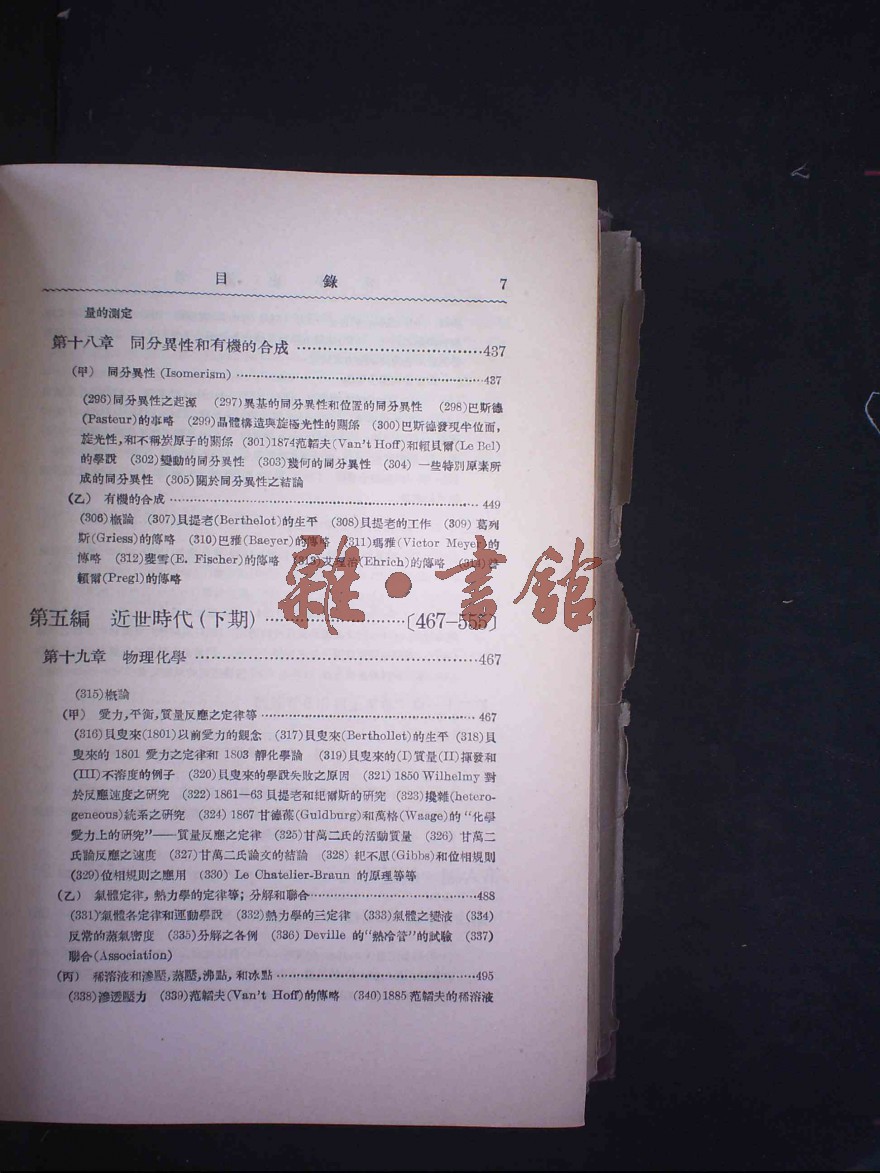 目錄 7
量的測定
第十八章 同分異性和有機的合成 437
(甲) 同分異性 (Isomerism) 437
(296)同分異性之起源 (297)異基的同分異性和位置的同分異性 (298)巴斯德
(Pasteur)的事略 (299)晶體構造與旋極光性的關係 (300)巴斯德發現半位面,
旋光性,和不稱炭原子的關係 (301)1874范韜夫(Van't Hoff)和賴貝爾(Le Bel)
的學說 (302)變動的同分異性 (303)幾何的同分異性 (304) 一些特別原素所
成的同分異性 (305)關於同分異性之結論
(乙) 有機的合成 449
(306)概論 (307)貝提老(Berthelot)的生平 (308)貝提老的工作 (309) 葛列
斯(Griess)的傳略 (310)巴雅(Baeyer)的傳略 (311)瑪雅(Victor Meyer)的
傳略 (312)斐雪(E. Fischer)的傳略 (313)艾理治(Ehrich)的傳略 (314)
賴爾(Pregl)的傳略
雜·書館
第五編 近世時代 (下期) 〔467—555〕
第十九章 物理化學 467
(315)概論
(甲) 愛力,平衡,質量反應之定律等 467
(316)貝叟來(1801)以前愛力的觀念 (317)貝叟來(Berthollet)的生平 (318)貝
叟來的 1801 愛力之定律和 1803 靜化學論 (319)貝叟來的(I)質量(II)揮發和
(III)不溶度的例子 (320)貝叟來的學說失敗之原因 (321) 1850 Wilhelmy 對
於反應速度之研究 (322) 1861—63 貝提老和紀爾斯的研究 (323)攙雜(hetero-
geneous)統系之研究 (324) 1867 甘德葆(Guldburg)和萬格(Waage)的“化學
愛力上的研究”——質量反應之定律 (325)甘萬二氏的活動質量 (326) 甘萬二
氏論反應之速度 (327)甘萬二氏論文的結論 (328) 紀不思(Gibbs)和位相規則
(329)位相規則之應用 (330) Le Chatelier-Braun 的原理等等
(乙) 氣體定律, 熱力學的定律等; 分解和聯合 488
(331)氣體各定律和運動學說 (332)熱力學的三定律 (333)氣體之變液 (334)
反常的蒸氣密度 (335)分解之各例 (336) Deville 的“熱冷管”的試驗 (337)
聯合(Association)
(丙) 稀溶液和滲壓,蒸壓,沸點, 和冰點 495
(338)滲透壓力 (339)范韜夫(Van't Hoff)的傳略 (340)1885范韜夫的稀溶液